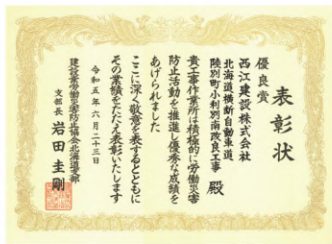 表彰状
優良賞
西江建設株式会社
北海道横断自動車道
陸別町小利別南改良工事 殿
貴工事作業所は積極的に労働災害
防止活動を推進し優秀な成績を
あげられました
ここに深く敬意を表するとともに
その業績をたたえ表彰いたします
令和五年六月二十三日
建設業労働災害防止協会北海道支部
支部長 岩田圭剛